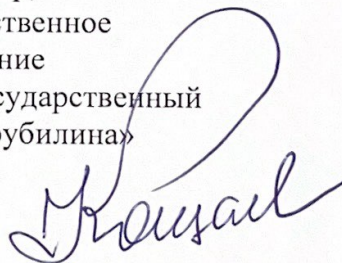 ственное
ние
сударственный
рубилина»